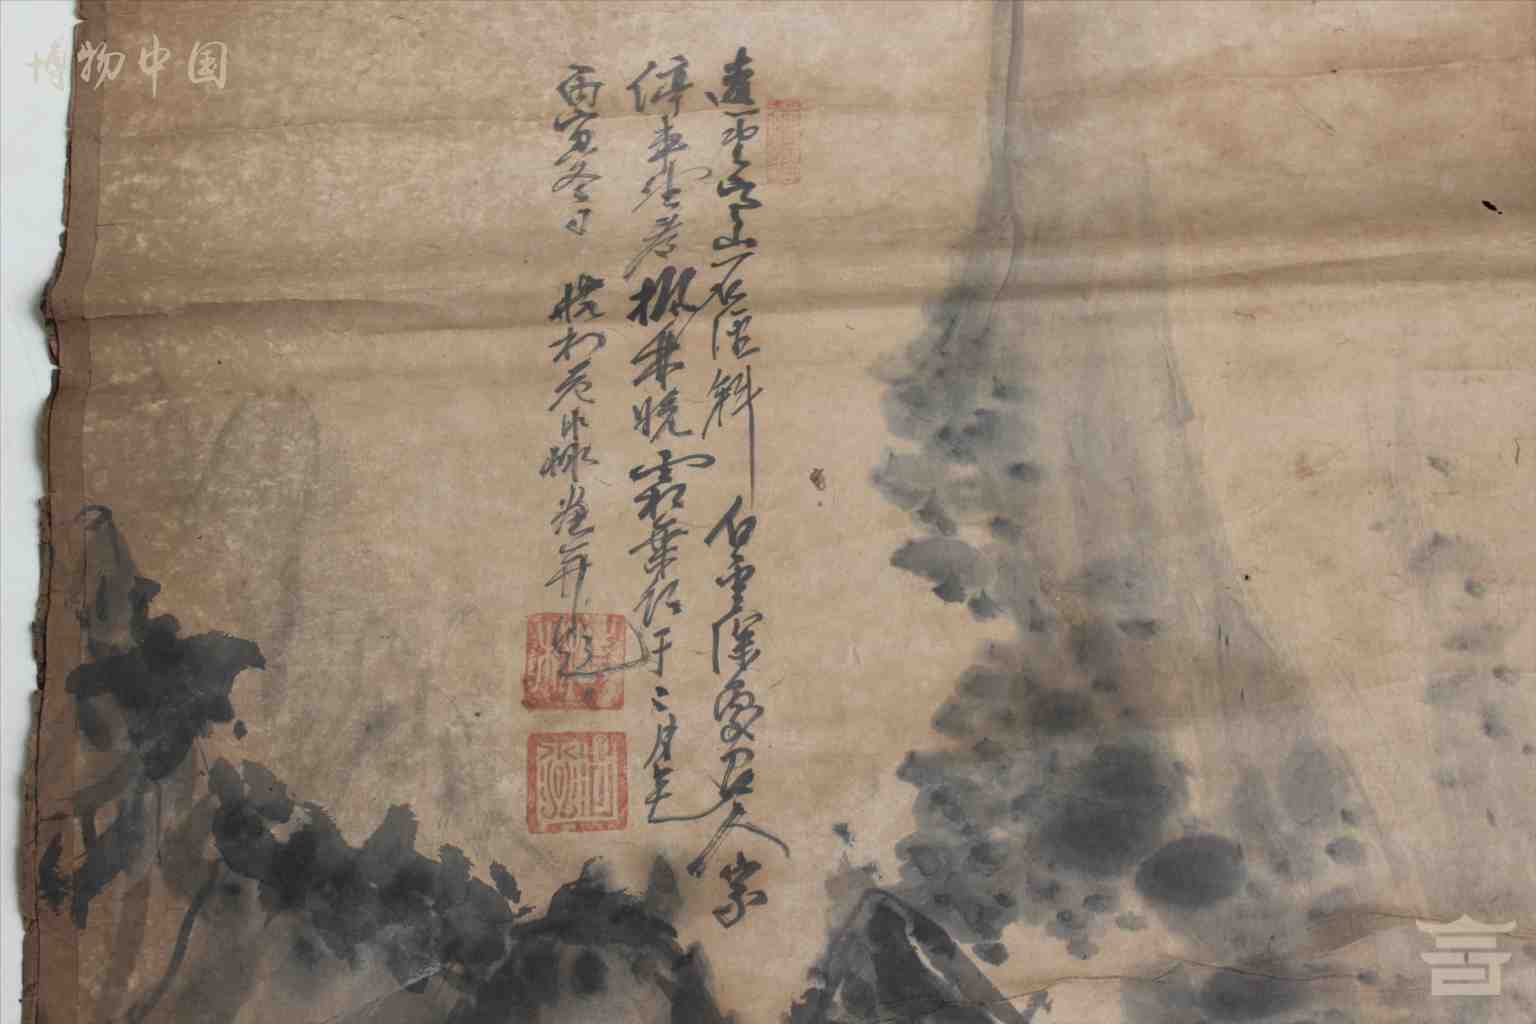 博物中国
遠上寒山石徑斜 白雲深處有人家
停車坐愛楓林晚霜葉紅于二月花
丙寅冬日 并題